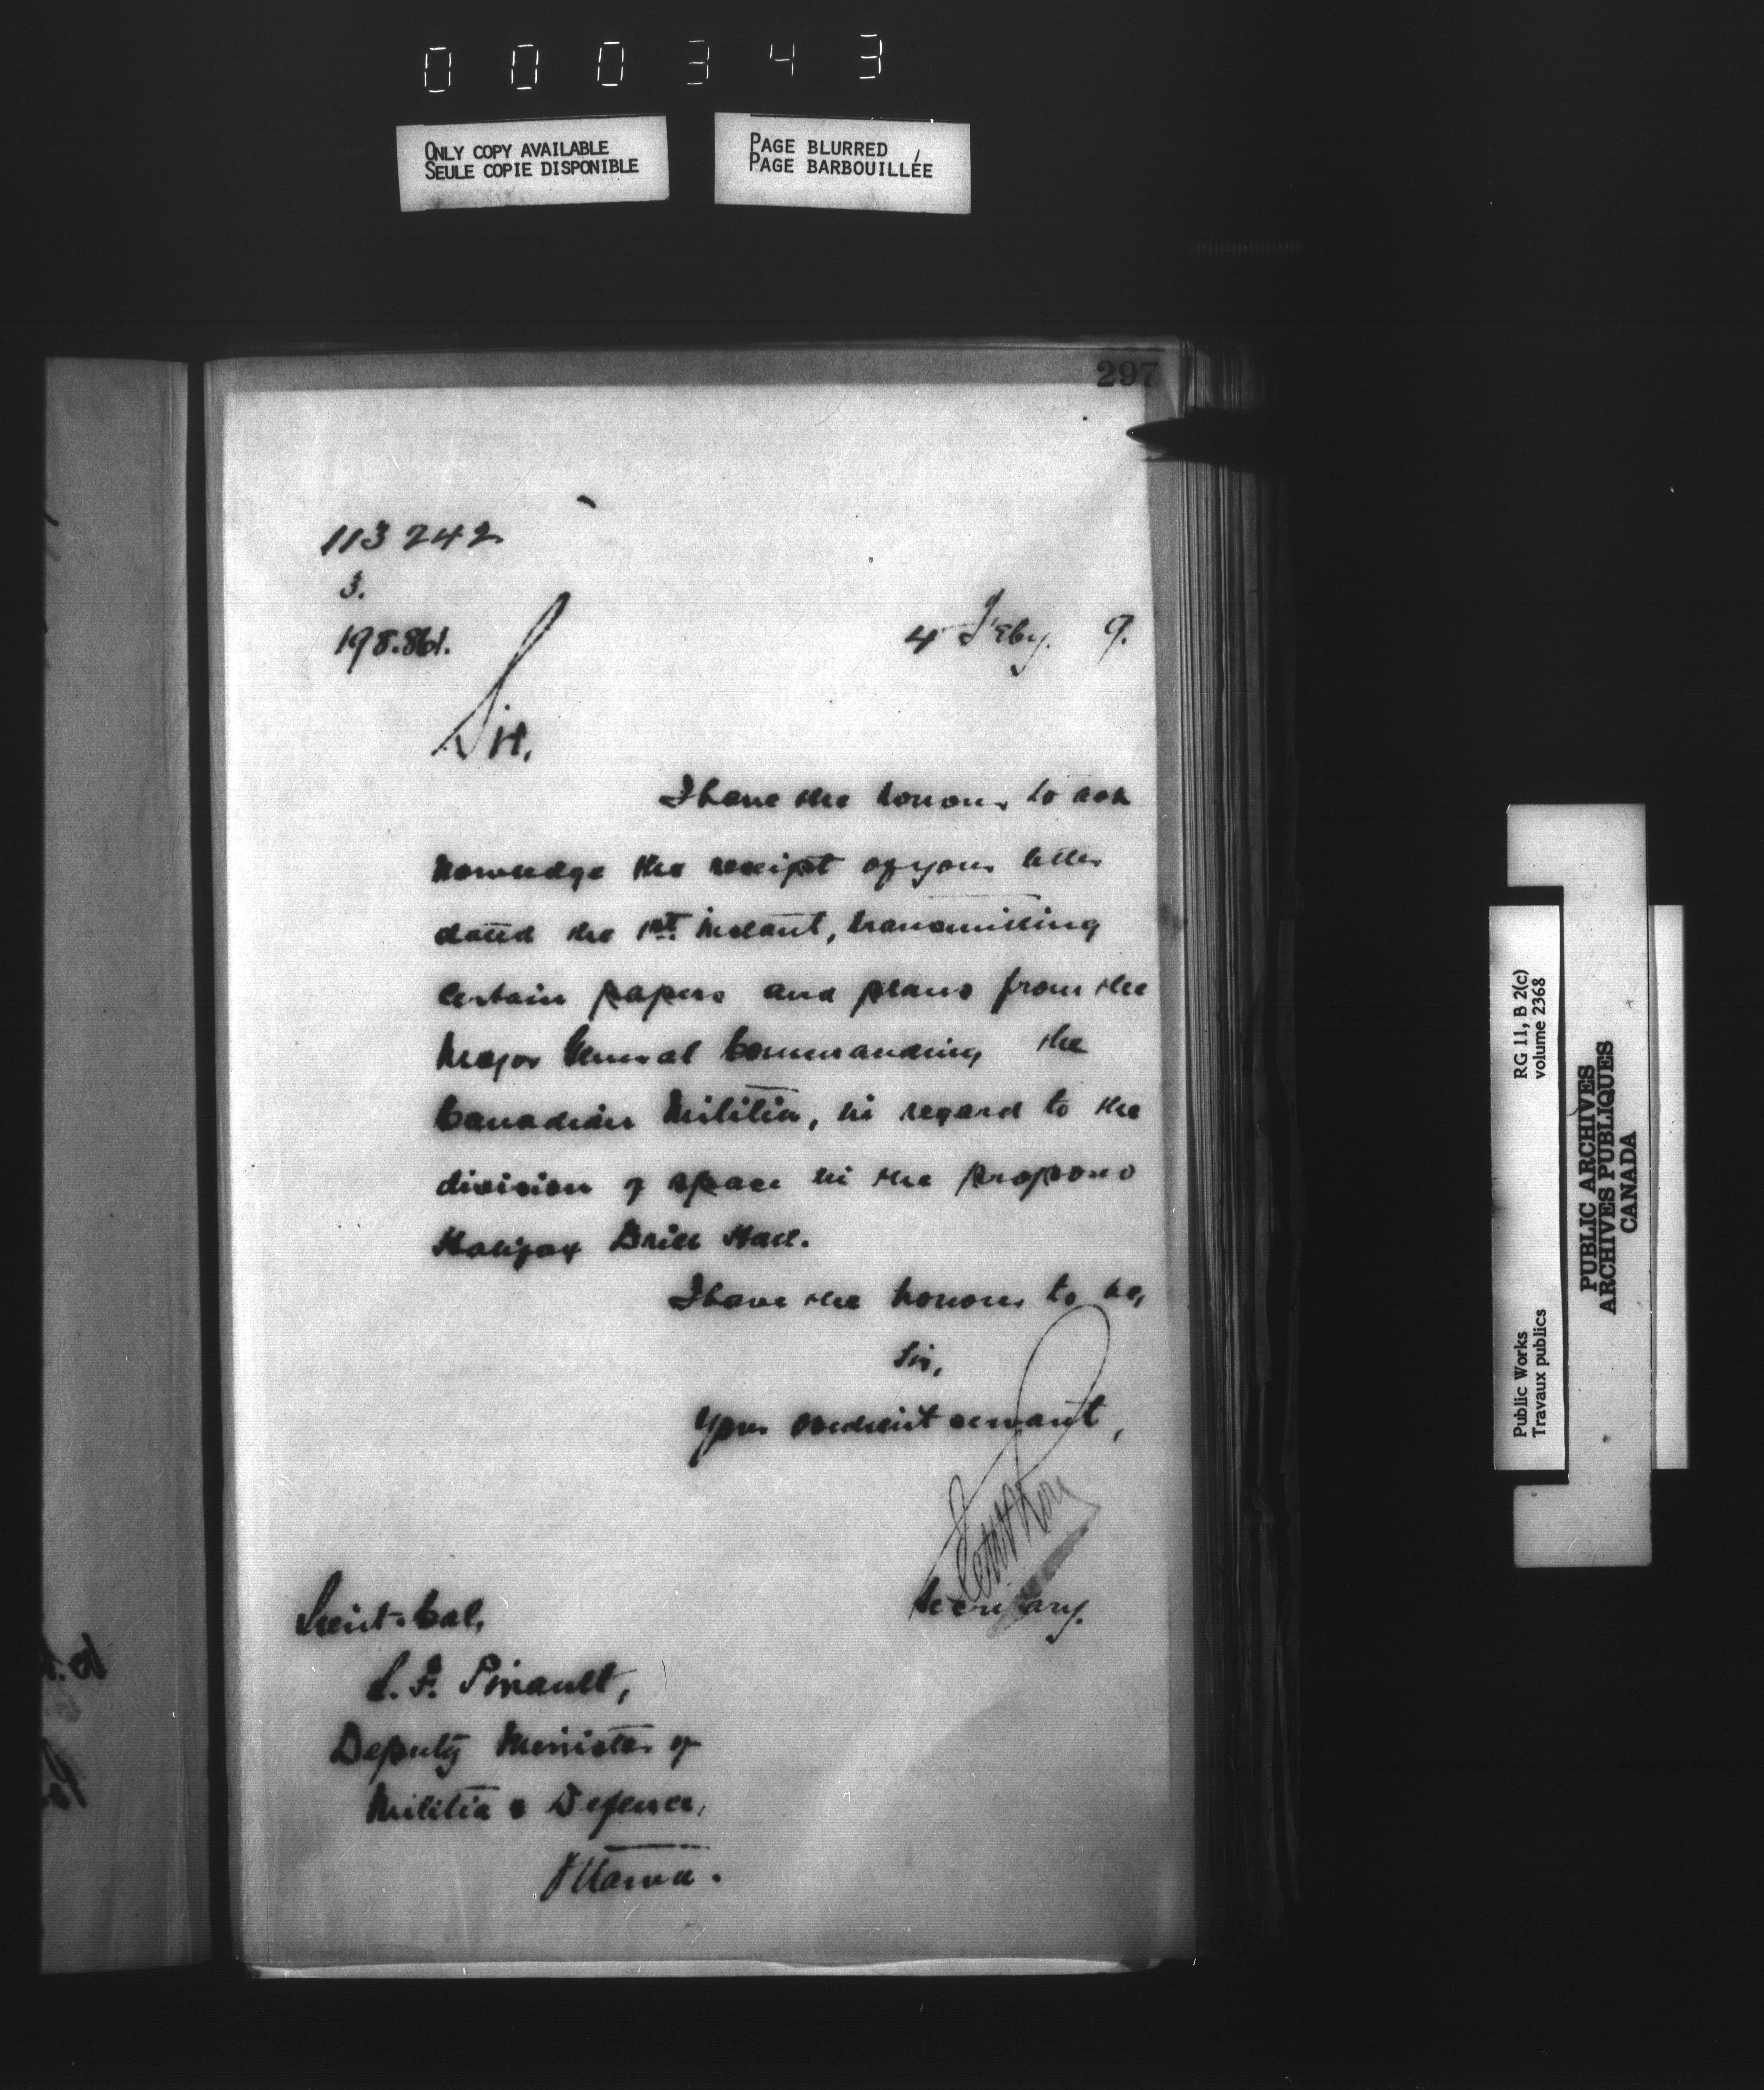 000343
ONLY COPY AVAILABLE
SEULE COPIE DISPONIBLE
PAGE BLURRED
PAGE BARBOUILLÉE
297
113242
3.
198.861.
4 Feby. 9.
Sir,
I have the honour to ack
nowledge the receipt of your letter
dated the 1st. instant, transmitting
certain papers and plans from the
Major General Commanding the
Canadian Militia, in regard to the
division of space in the proposed
Halifax Drill Hall.
I have the honour to be,
Sir,
Your obedient servant,
Secretary.
Lieut-Col.
L. F. Pinault,
Deputy Minister of
Militia & Defence,
Ottawa.
RG 11, B 2(c)
volume 2368
Public Works
Travaux publics
PUBLIC ARCHIVES
ARCHIVES PUBLIQUES
CANADA